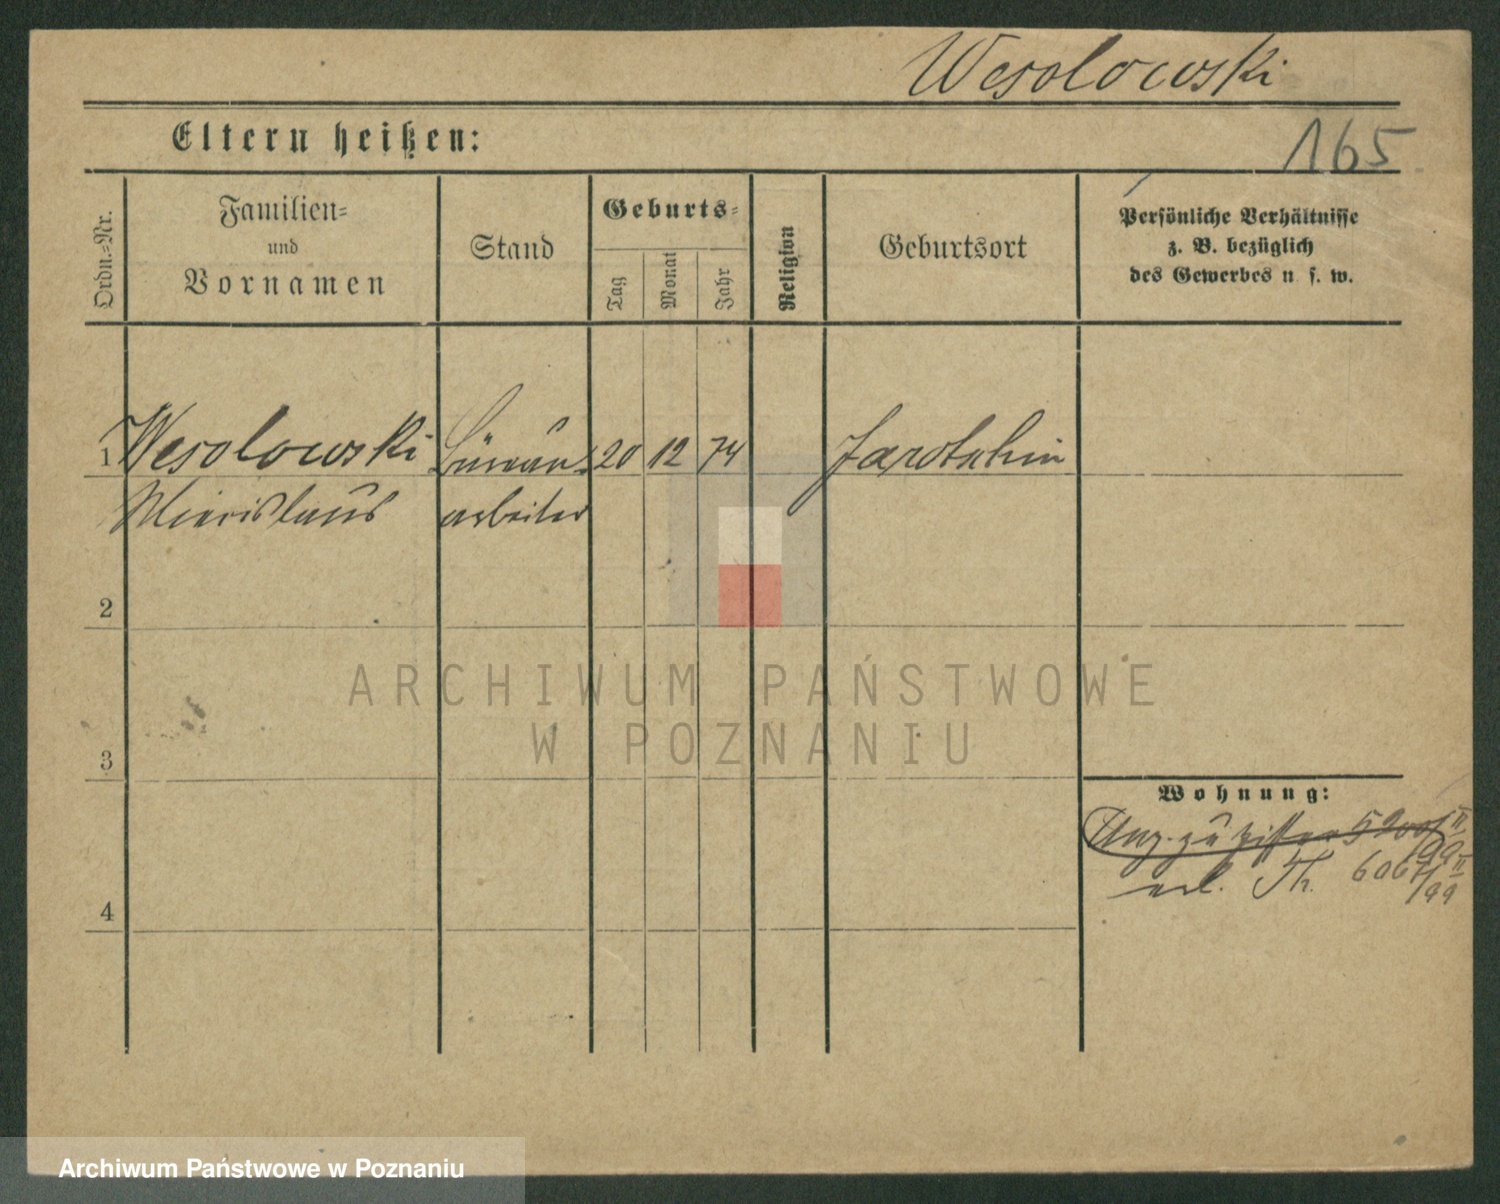 Wesolowski
Eltern heißen:
165
Ordn.-Nr.
Familien-
und
Vornamen
Stand
Geburts-
Tag
Monat
Jahr
Religion
Geburtsort
Persönliche Verhältnisse
z. B. bezüglich
des Gewerbes u. s. w.
1 Wesolowski Büreau- 20 12 74 Jarotschin
arbeiter
2
ARCHIWUM PAŃSTWOWE
W POZNANIU
3
Wohnung:
4
Archiwum Państwowe w Poznaniu